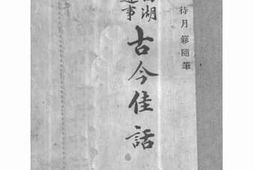 待月簃隨筆
湖
事
古今佳話